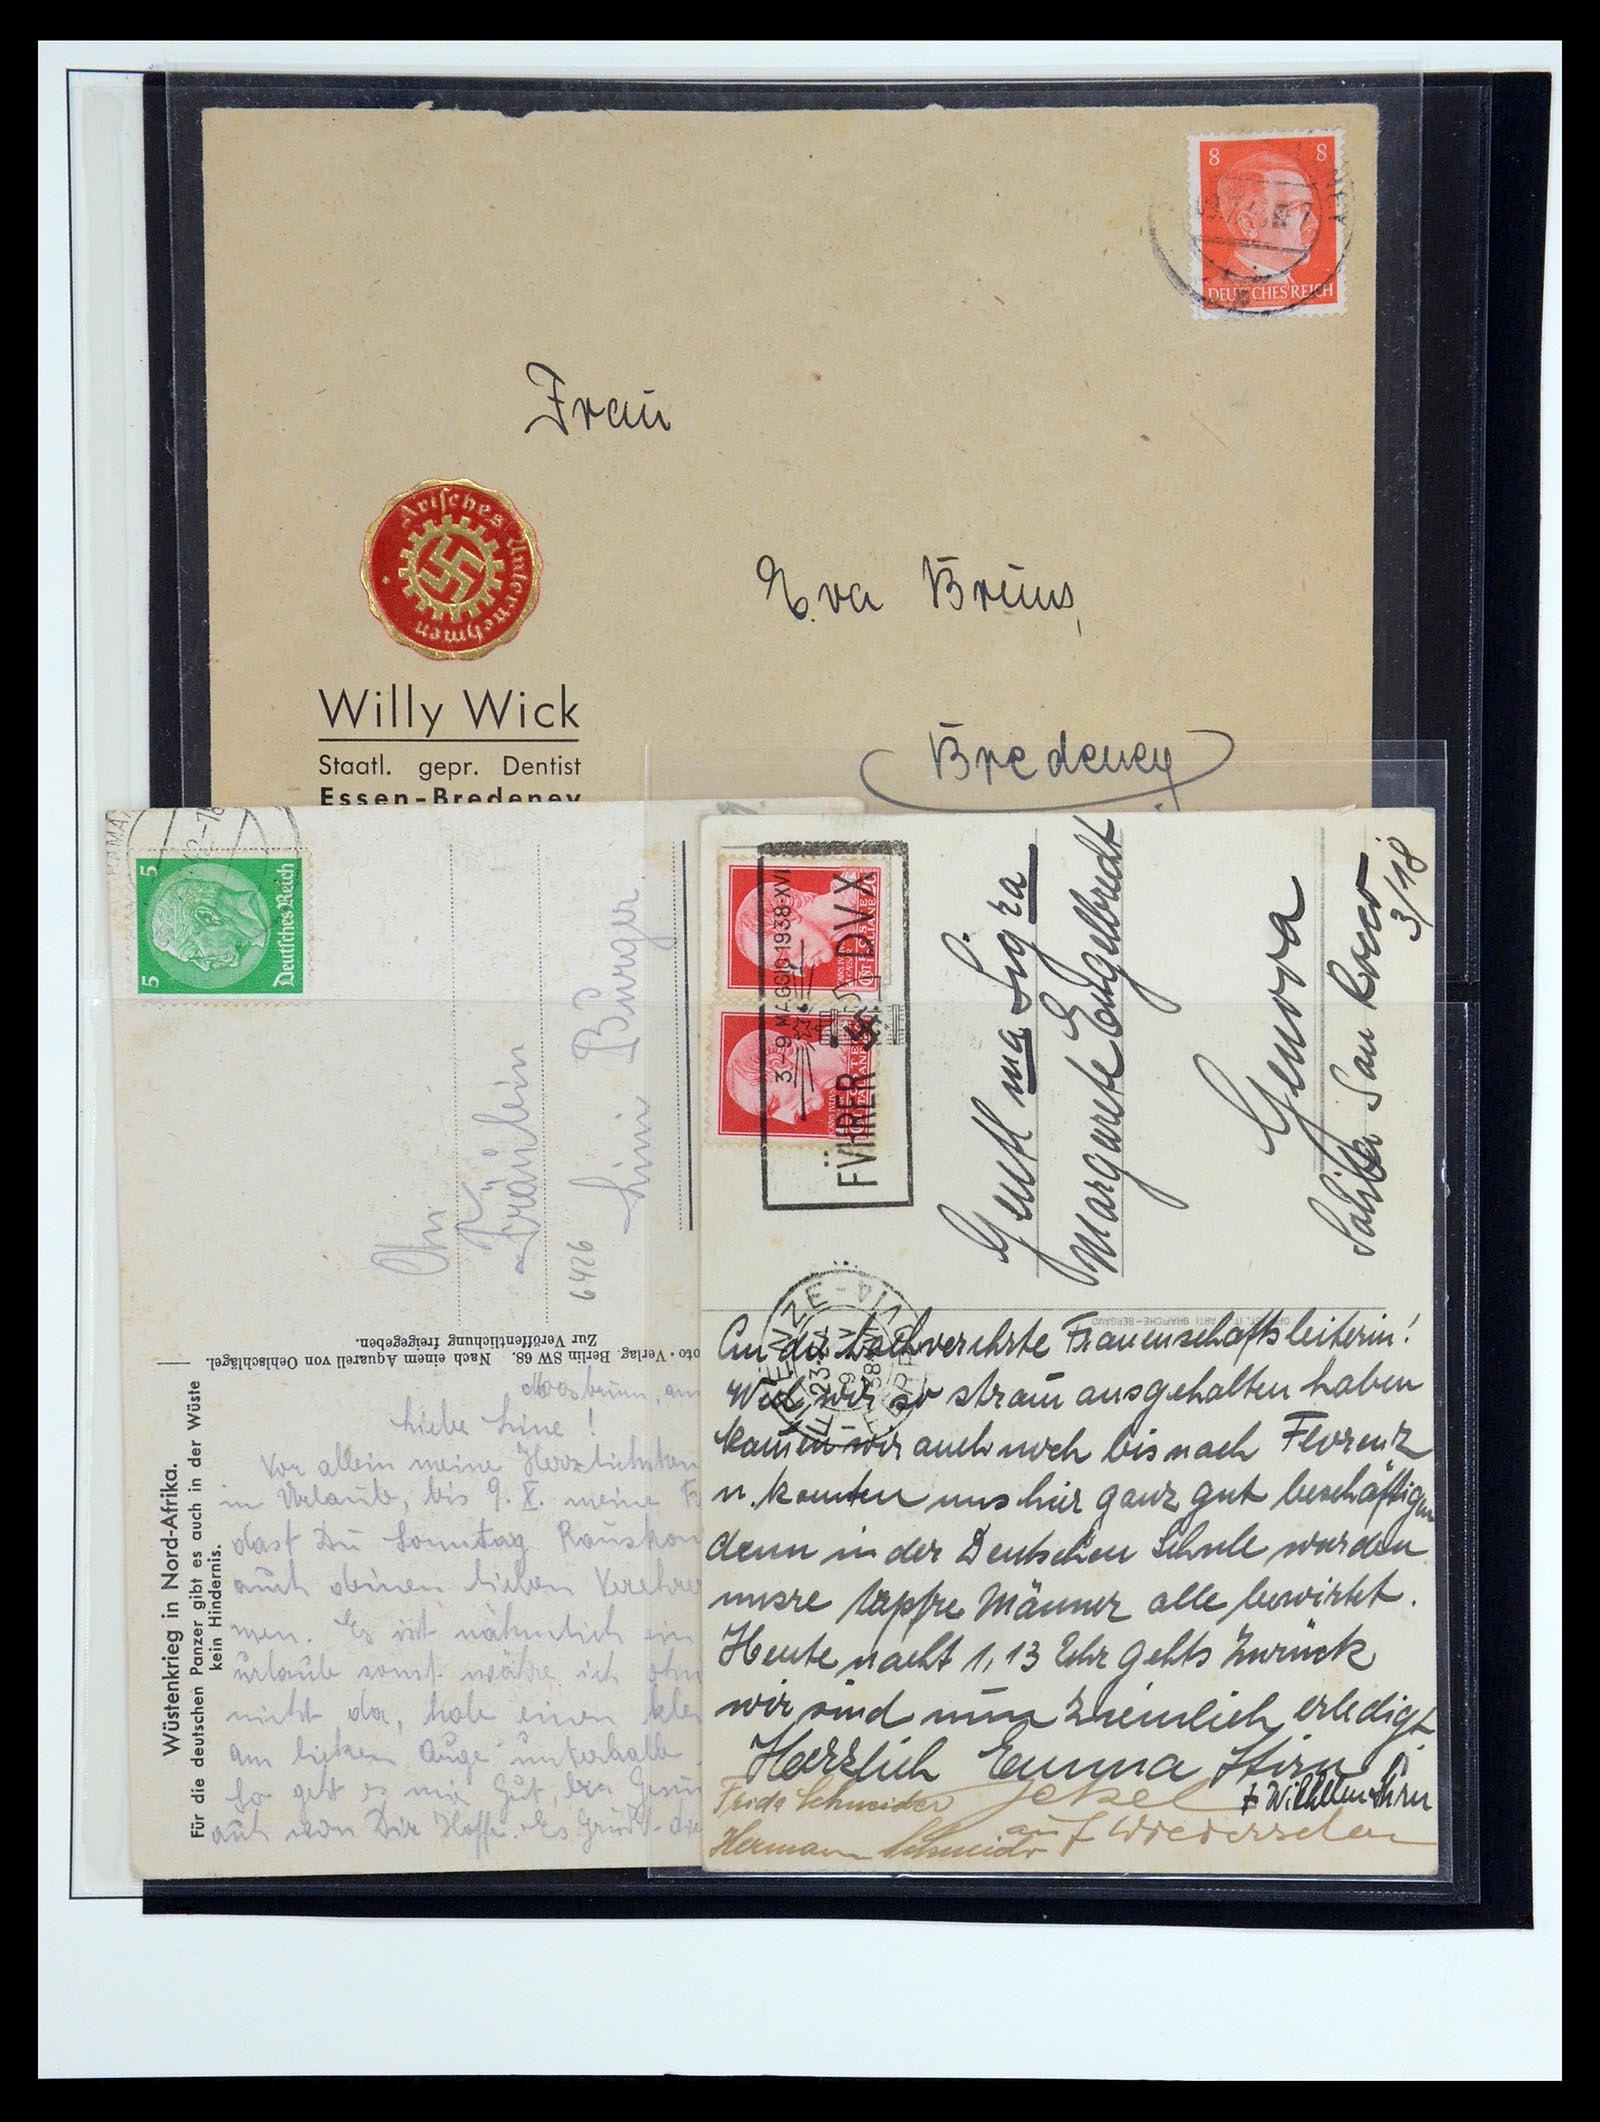 8 8
DEUTSCHES REICH
Frau
Arisches Unternehmen
Eva Bruns,
Willy Wick
Staatl. gepr. Dentist
Essen-Bredeney
Bredeney
5 5
Deutsches Reich
An
Fräulein
Lini Burger
6426
Verlag. Berlin SW 68. Nach einem Aquarell von Oehlschlägel.
Zur Veröffentlichung freigegeben.
Wüstenkrieg in Nord-Afrika.
Für die deutschen Panzer gibt es auch in der Wüste
kein Hindernis.
Moosbrunn, am
Liebe Line!
Vor allem meine Herzlichsten
in Urlaub, bis 9. X. meine
dast Du Sonntag Rauskom
auch deinen lieben Verehrer
men. Es ist nähmlich ein
urlaub sonst währe ich ohn
nicht da, habe einen klei
am linken Auge unterhalb
So geht es mir Gut, bin Gesun
auch von Dir Hoffe. Es Grüßt die
3-9 MAGGIO 1938-XVI
FVHRER DVX
Gentil ma Sigra
Margarete Engelbrecht
Genova
Salita San Rocco
3/18
FIRENZE
An die hochverehrte Frauenschaftsleiterin!
Weil wir so stram ausgehalten haben
kamen wir auch noch bis nach Florenz
u. konnten uns hier ganz gut beschäftigen
denn in der Deutschen Schule wurden
unsre tapfre Männer alle bewirtet.
Heute nacht 1,13 Uhr gehts zurück
wir sind nun ziemlich erledigt.
Herzlich Emma Stirn
+ Wilhelm Stirn
Frida Schneider
auf Wiedersehen
Hermann Schneider